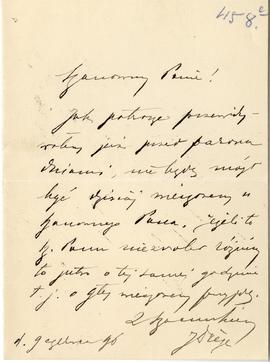 458.c
Szanowny Panie!
Jak potrosze przewidy-
wałem już przed paroma
dniami, nie będę mógł
być dzisiaj wieczorem u
Szanownego Pana. Jeżeli to
Sz. Panu nie zrobi różnicy
to jutro o tej samej godzinie
t. j. o 8ej wieczorem przyjdę.
Z szacunkiem
d. 9 czerwca 96